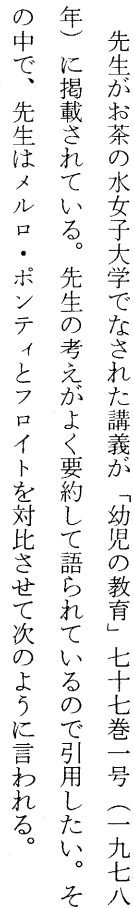 先生がお茶の水女子大学でなされた講義が「幼児の教育」七十七巻一号（一九七八
年）に掲載されている。先生の考えがよく要約して語られているので引用したい。そ
の中で、先生はメルロ・ポンティとフロイトを対比させて次のように言われる。